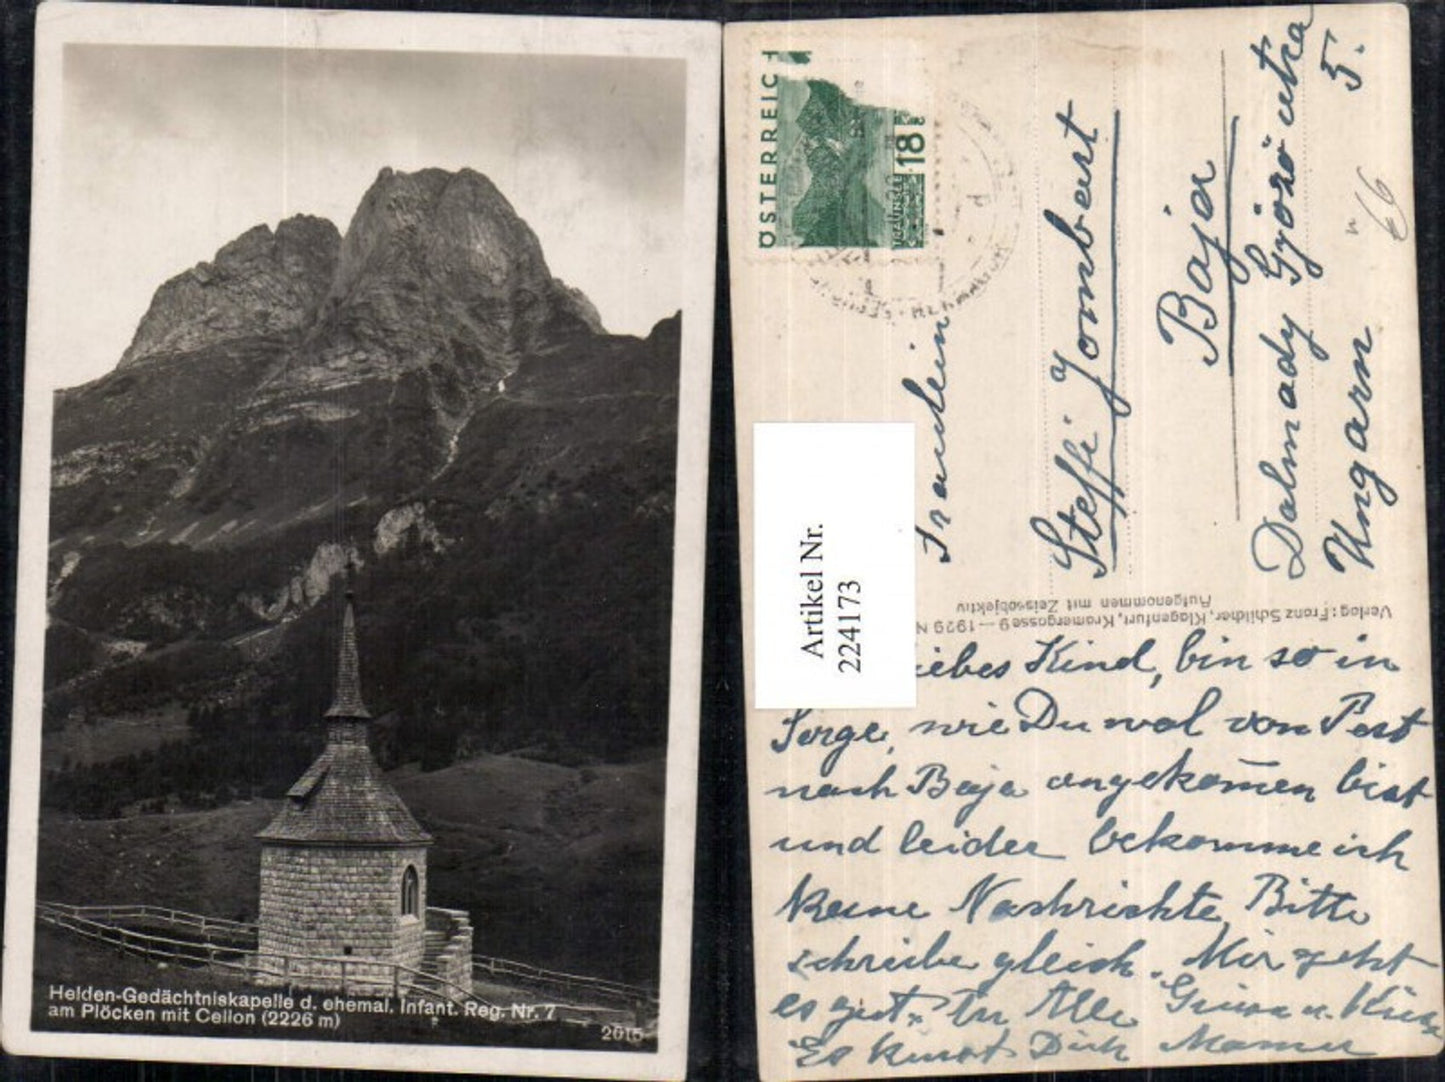 Helden-Gedächtniskapelle d. ehemal. Infant. Reg. Nr. 7
am Plöcken mit Cellon (2226 m)
2015
ÖSTERREICH
18
TRAUNSEE
Artikel Nr.
224173
Fraulein
Steffi Jombart
Baja
Dalmady Györö utca
5.
Ungarn
66
Verlag: Franz Schilcher, Klagenfurt, Kramergasse 9 — 1929 N
Aufgenommen mit Zeissobjektiv
iebes Kind, bin so in
Sorge, wie Du wol von Pest
nach Baja angekom̄en bist
und leider bekomme ich
keine Nachrichte, Bitte
schreibe gleich. Mir geht
es gut. An Alle Grüsse u. Küsse
Es küsst Dich Mama